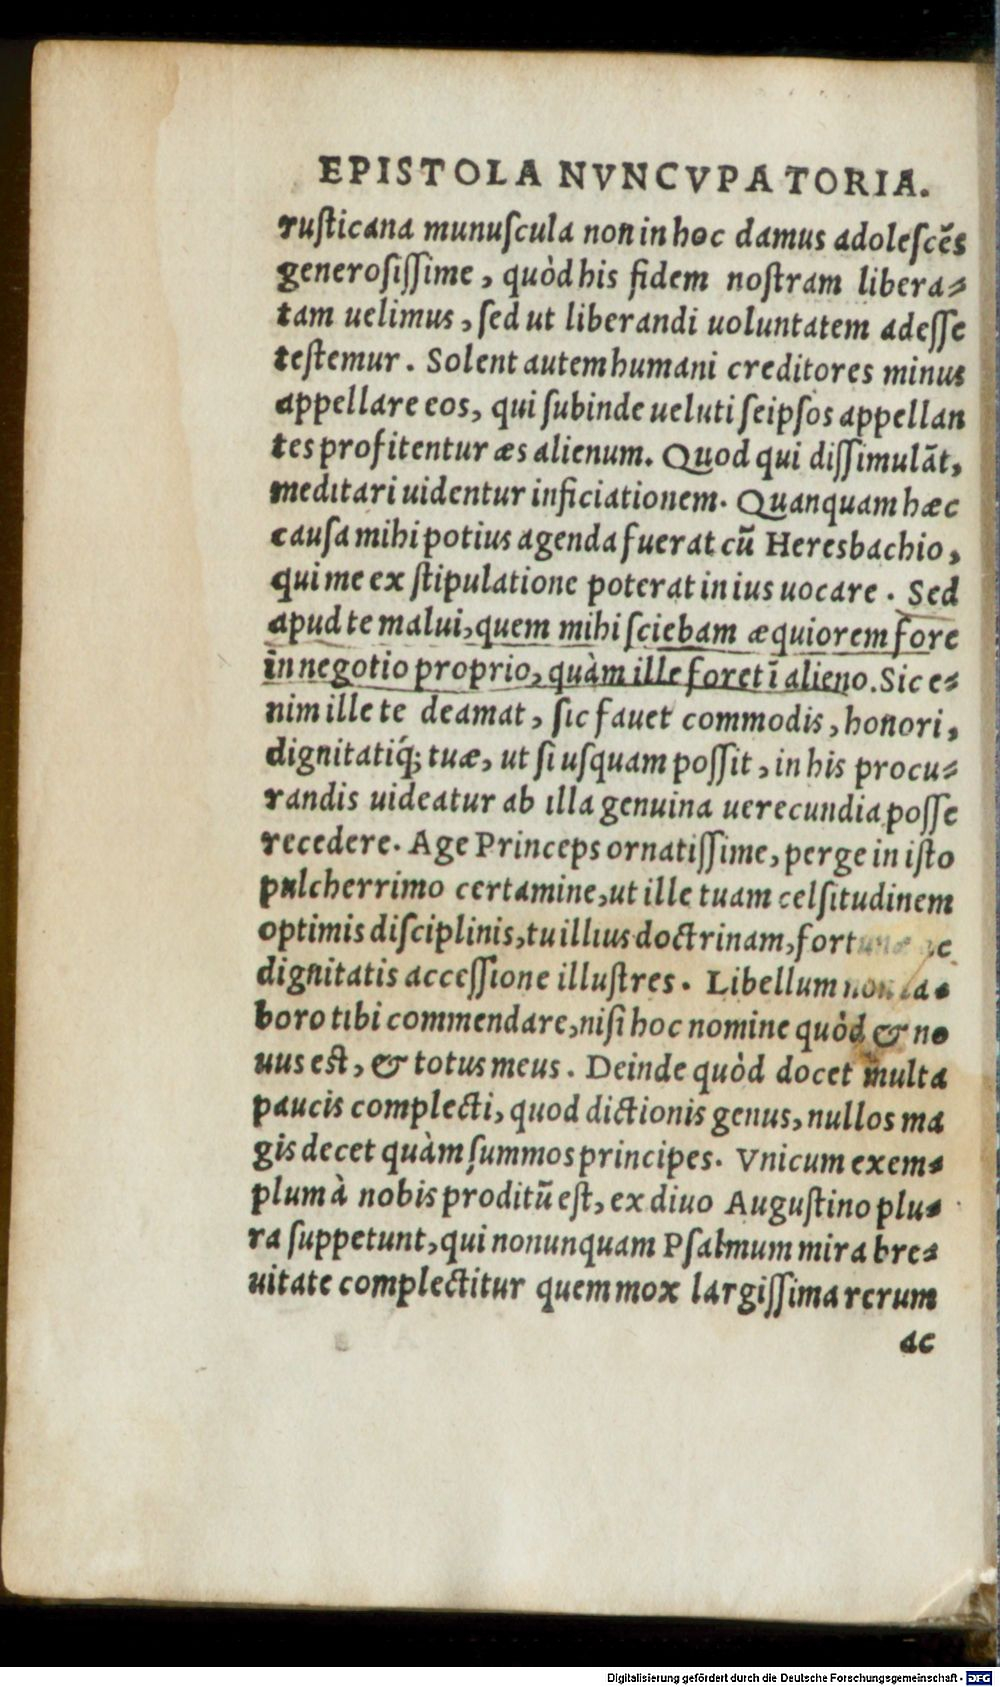 EPISTOLA NVNCVPATORIA.
ruſticana munuſcula non in hoc damus adoleſcēs
generoſiſſime, quòd his fidem noſtram libera-
tam uelimus, ſed ut liberandi uoluntatem adeſſe
teſtemur. Solent autem humani creditores minus
appellare eos, qui ſubinde ueluti ſeipſos appellan
tes profitentur æs alienum. Quod qui diſſimulāt,
meditari uidentur inficiationem. Quanquam hæc
cauſa mihi potius agenda fuerat cū Heresbachio,
qui me ex ſtipulatione poterat in ius uocare. Sed
apud te malui, quem mihi ſciebam æquiorem fore
in negotio proprio, quàm ille foret ī alieno. Sic e-
nim ille te deamat, ſic fauet commodis, honori,
dignitatiq́; tuæ, ut ſi uſquam poſſit, in his procu-
randis uideatur ab illa genuina uerecundia poſſe
recedere. Age Princeps ornatiſſime, perge in iſto
pulcherrimo certamine, ut ille tuam celſitudinem
optimis diſciplinis, tu illius doctrinam, fortunæ ac
dignitatis acceſſione illuſtres. Libellum non la-
boro tibi commendare, niſi hoc nomine quòd & no
uus eſt, & totus meus. Deinde quòd docet multa
paucis complecti, quod dictionis genus, nullos ma
gis decet quàm ſummos principes. Vnicum exem-
plum à nobis proditū eſt, ex diuo Auguſtino plu-
ra ſuppetunt, qui nonunquam Pſalmum mira bre-
uitate complectitur quem mox largiſſima rerum
ac
Digitalisierung gefördert durch die Deutsche Forschungsgemeinschaft - DFG